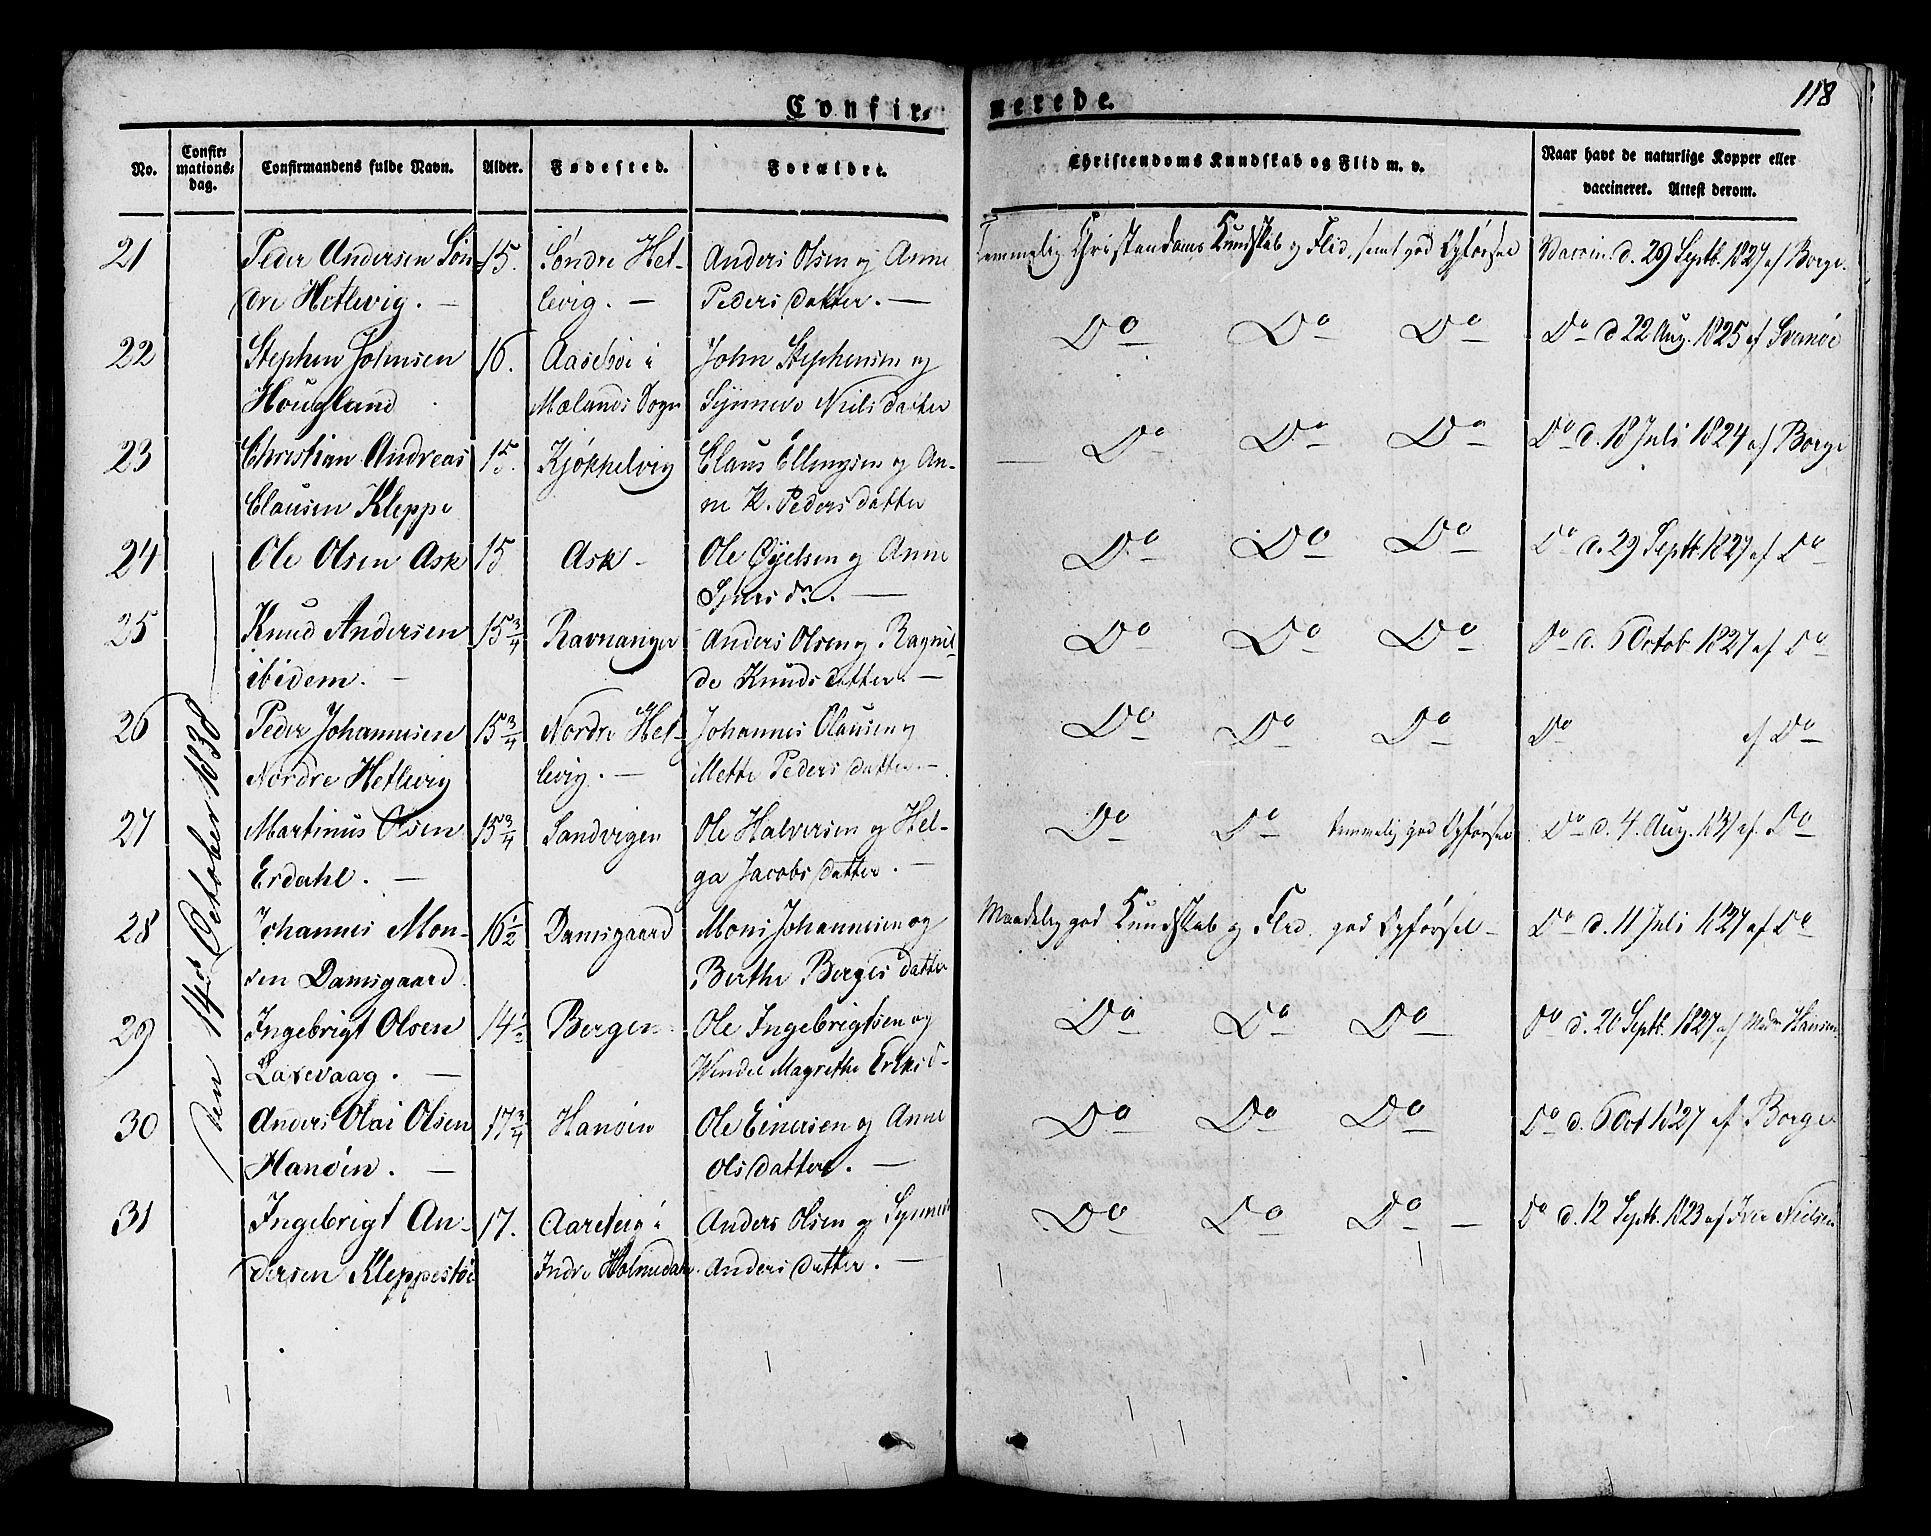 118
Confirmerede.
No. Confirmationsdag. Confirmandens fulde Navn. Alder. Fødested. Forældre. Christendoms Kundskab og Flid m. v. Naar havt de naturlige Kopper eller vaccineret. Attest derom.
den 14de October 1838
21 Peder Andersen Søn- 15. Søndre Het- Anders Olsen og Anne Temmelig Christendoms Kundskab og Flid, samt god Opførsel Vaccin. d. 29 Septb. 1827 af Borge.
dre Hetlevig. — levig. — Peders datter. —
22 Stephen Johnsen 16. Aasebøe i John Stephensen og Do Do Do Do d 22 Aug. 1825 af Svanøe
Hougland Mælands Sogn Synneve Niels datter
23 Christian Andreas 15. Kjøkkelvig Claus Ellingsen og An- Do Do Do Do d. 18 Juli 1824 af Borge
Clausen Kleppe ne K. Peders datter
24 Ole Olsen Ask 15 Ask - Ole Øyelsen og Anne Do Do Do Do d. 29 Septb. 1827 af Do
Sjurs dr. —
25 Knud Andersen 15 3/4 Ravnanger Anders Olsen og Ragnil- Do Do Do Do d. 6 Octob 1827 af Do
ibidem. — de Knuds datter. —
26 Peder Johannesen 15 3/4 Nordre Het- Johannes Clausen og Do Do Do Do af Do
Nordre Hetlevig levig. — Mette Peders datter. —
27 Martinus Olsen 15 3/4 Sandvigen Ole Halversen og Hel- Do Do temmelig god Opførsel Do d. 4. Aug. 131 af Do
Erdahl. — ga Jacobs datter. —
28 Johannes Mon- 16 1/2 Damsgaard Mons Johannesen og Maadelig god Kundskab og Flid. god Opførsel — Do d. 11 Juli 1827 af Do
sen Damsgaard. Berthe Børges datter
29 Ingebrigt Olsen 14 1/2 Bergen Ole Ingebrigtsen og Do Do Do Do d. 20 Septb. 1827 af Mdm Hansen
Laxevaag. — Wendel Magrethe Eriksd-
30 Anders Olai Olsen 17 3/4 Hanøen Ole Einersen og Anne Do Do Do Do d. 6 Oct 1827 af Borge
Hanøen. — Ols datter. —
31 Ingebrigt An- 17. Aareteig i Anders Olsen og Synneve Do Do Do — Do d. 12 Septb. 1823 af Iver Nielsen
dersen Kleppestøe Indre Holmedahl. Anders datter. —